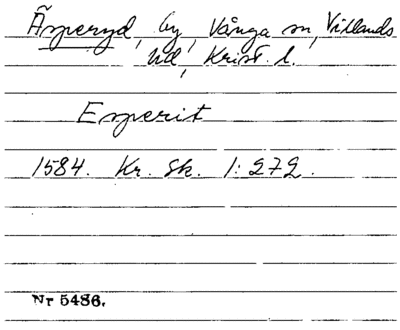 Äsperyd, by, Vånga sn, Villands
hd, Krist. l.
Esperit
1584. Kr. Sk. 1:272.
Nr 5486.